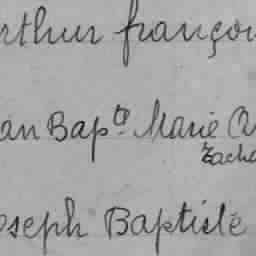 rthur françoi
an Bap.te Marie A
Zacha
oseph Baptiste